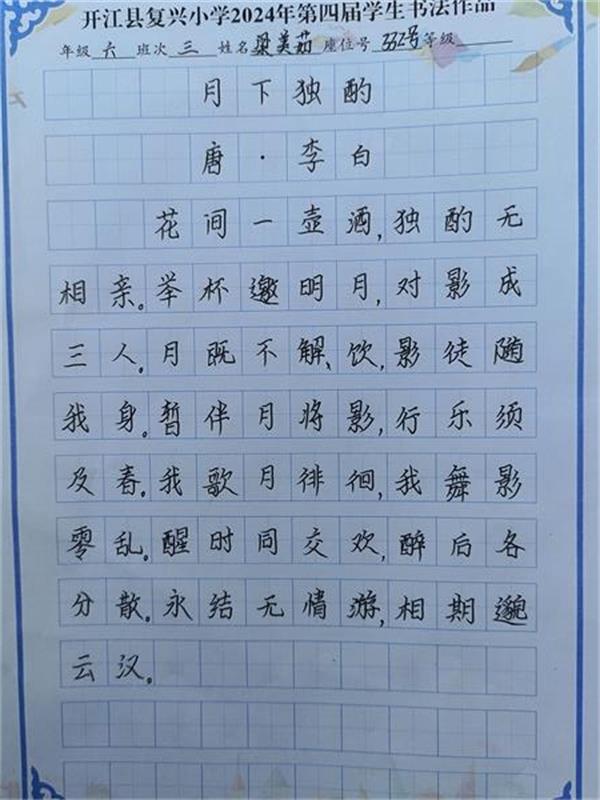 开江县复兴小学2024年第四届学生书法作品
年级 六 班次 三 姓名 梁美茹 座位号 332号 等级
月下独酌
唐·李白
花间一壶酒,独酌无
相亲。举杯邀明月,对影成
三人。月既不解、饮,影徒随
我身。暂伴月将影,行乐须
及春。我歌月徘徊,我舞影
零乱。醒时同交欢,醉后各
分散。永结无情游,相期邈
云汉。